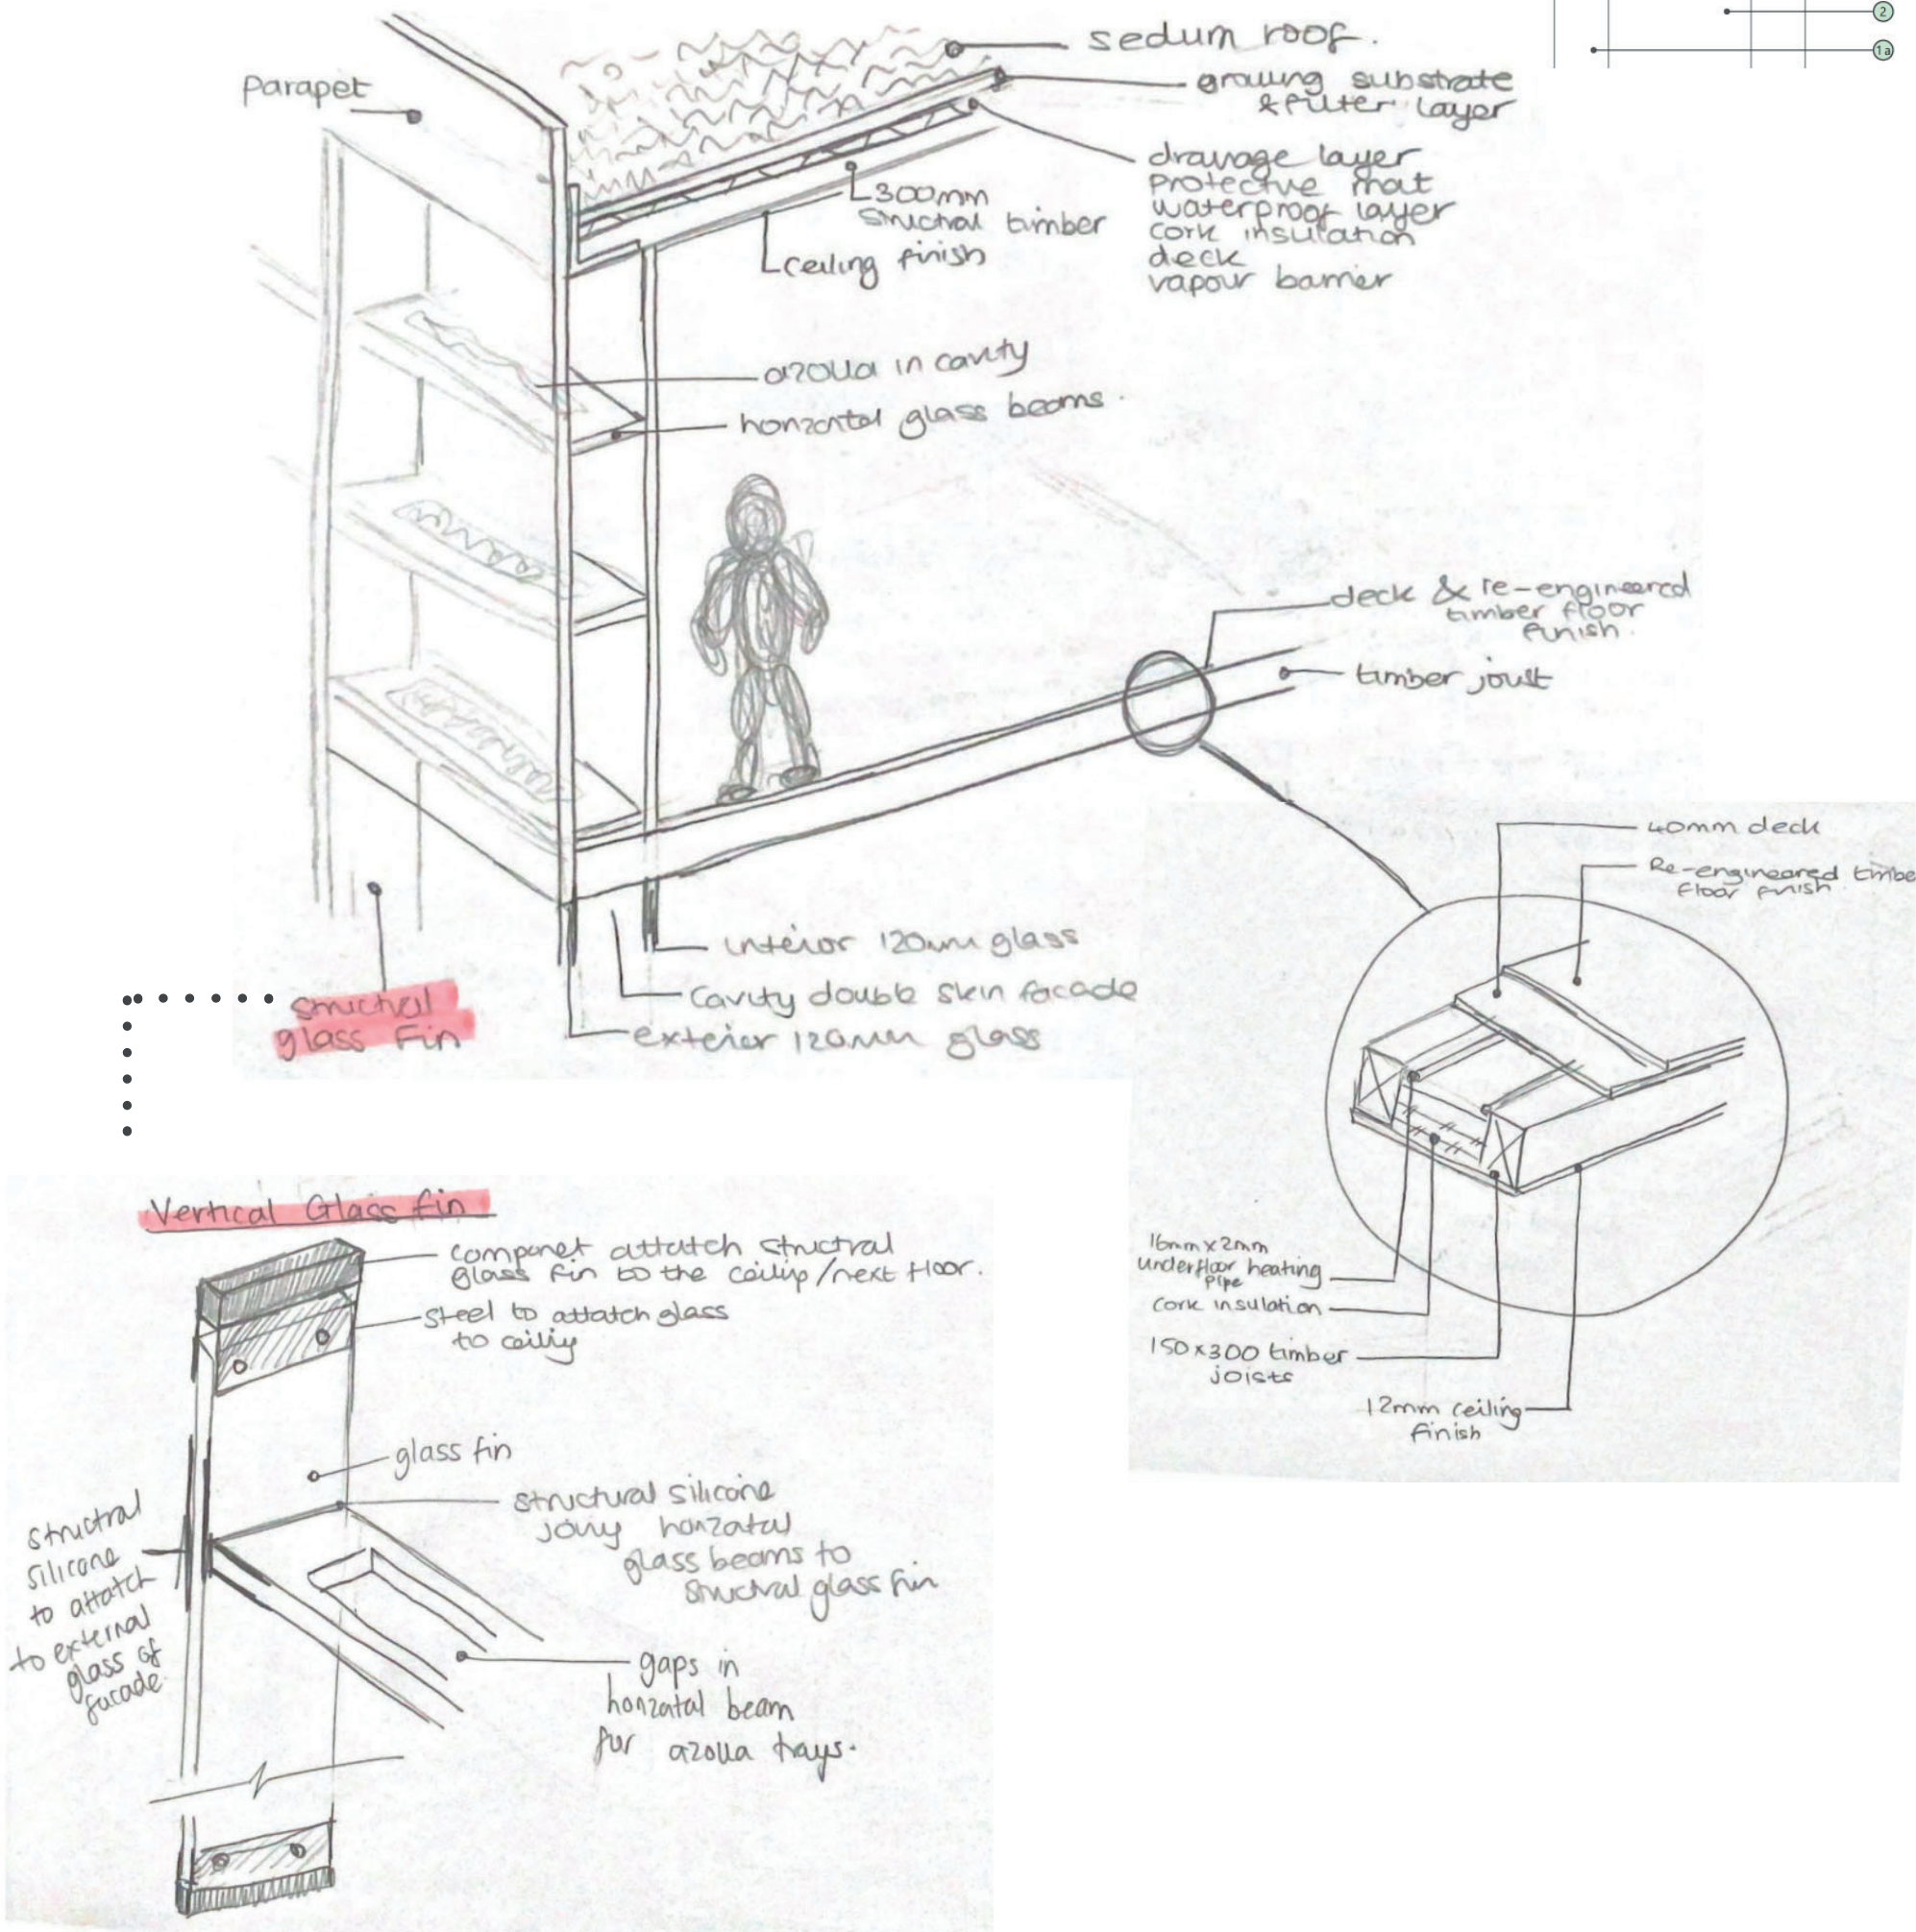 2
1a
sedum roof.
Parapet
growing substrate
& filter layer
drawage layer
Protective mat
waterproof layer
cork insulation
deck
vapour barrier
300mm
Structral timber
ceiling finish
azolla in cavity
horizontal glass beams.
deck & re-engineered
timber floor
finish.
timber joist
40mm deck
Re-engineered timbe
floor finish.
interior 120mm glass
Cavity double skin facade
exterior 120mm glass
structral
glass Fin
16mm x 2mm
underfloor heating
pipe
cork insulation
150 x 300 timber
joists
12mm ceiling
finish
Vertical Glass fin
componet attatch structral
glass fin to the ceilip/next floor.
steel to attatch glass
to ceiliy
glass fin
structural silicone
joiny honzatal
glass beams to
structral glass fin
structral
silicone
to attatch
to external
glass of
facade.
gaps in
honzatal beam
for azolla trays.